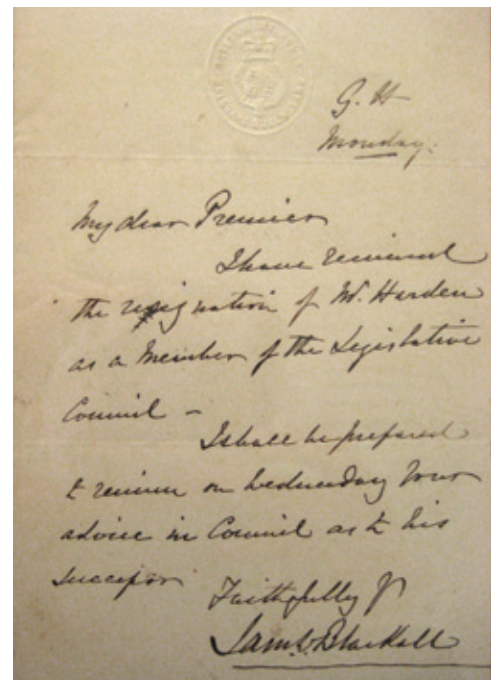 G. H
Monday.
My dear Premier
I have received
the resignation of Mr. Harden
as a Member of the Legislative
Council –
I shall be prepared
to receive on Wednesday your
advice in Council as to his
successor
Faithfully yr
Saml. Blackall